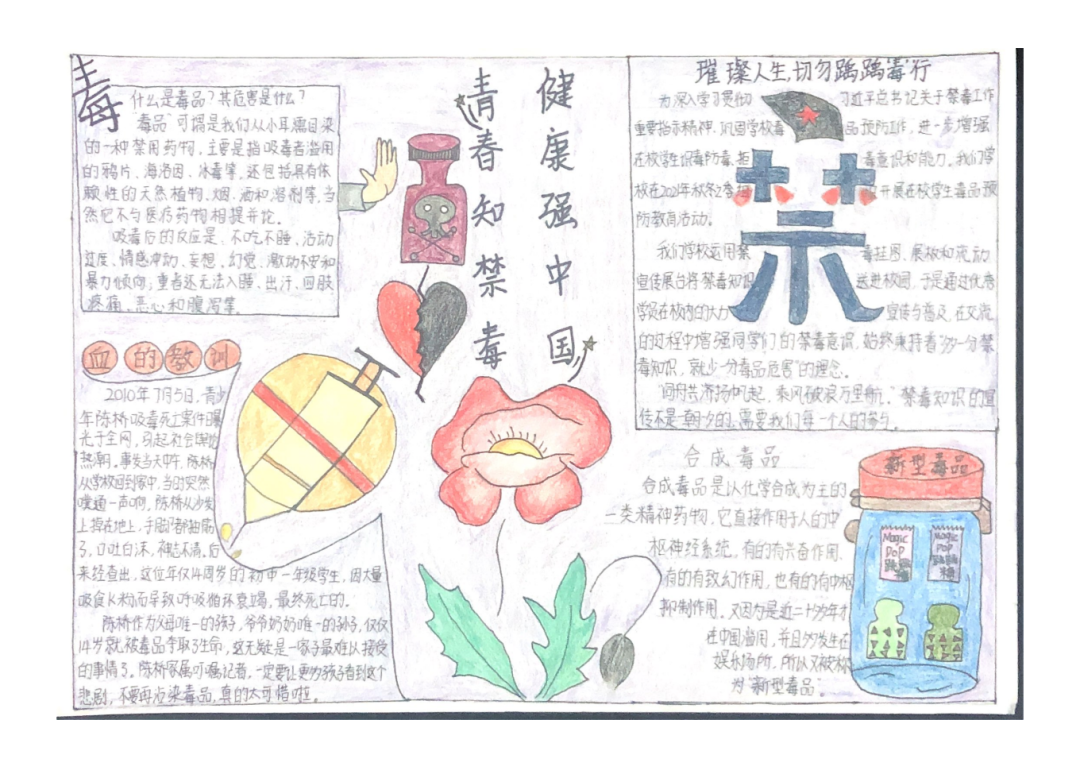 毒
什么是毒品?其危害是什么?
"毒品"可谓是我们从小耳濡目染
的一种禁用药物,主要是指吸毒者滥用
的鸦片、海洛因、冰毒等,还包括具有依
赖性的天然植物、烟、酒和溶剂等,当
然它不与医疗药物相提并论。
吸毒后的反应是、不吃不睡、活动
过度、情感冲动、妄想、幻觉、激动不安和
暴力倾向;重者还无法入睡、出汗、四肢
疼痛、恶心和腹泻等。
青春知禁毒
健康强中国
血的教训
2010年7月5日,青少
年陈桥吸毒死亡案件曝
光于全网,引起社会舆论
热潮。事发当天中午,陈桥
从学校回到家中,当时突然
噗通一声响,陈桥从沙发
上摔在地上,手脚都抽筋
了,口吐白沫,神志不清。后
来经查出,这位年仅14周岁的初中一年级学生,因大量
吸食K粉而导致呼吸循环衰竭,最终死亡的。
陈桥作为父母唯一的孩子,爷爷奶奶唯一的孙子,仅仅
14岁就被毒品夺取了生命,这无疑是一家子最难以接受
的事情了。陈桥家属叮嘱记者,一定要让更多孩子看到这个
悲剧,不要再沾染毒品,真的太可惜啦。
璀璨人生,切勿踽踽"毒"行
为深入学习贯彻 习近平总书记关于禁毒工作
重要指示精神,巩固学校毒 品预防工作,进一步增强
在校学生识毒防毒、拒 毒意识和能力,我们学
校在2021年秋冬2季 开展在校学生毒品预
防教育活动。
我们学校运用禁 毒挂图、展板和流动
宣传展台将禁毒知识 送进校园,于是通过优秀
学员在校内的大力 宣传与普及,在交流
的过程中增强同学们的禁毒意识,始终秉持着"多一分禁
毒知识,就少一分毒品危害"的理念。
同舟共济扬帆起,乘风破浪万里航;禁毒知识的宣
传不是一朝一夕的,需要我们每一个人的参与。
禁
合成毒品
合成毒品是以化学合成为主的
一类精神药物,它直接作用于人的中
枢神经系统,有的有兴奋作用,
有的有致幻作用,也有的有中枢
抑制作用。又因为是近二十多年才
在中国滥用,并且多发生在
娱乐场所,所以又被称
为"新型毒品"。
新型毒品
Magic
PoP
跳跳
糖
Magic
PoP
跳跳
糖